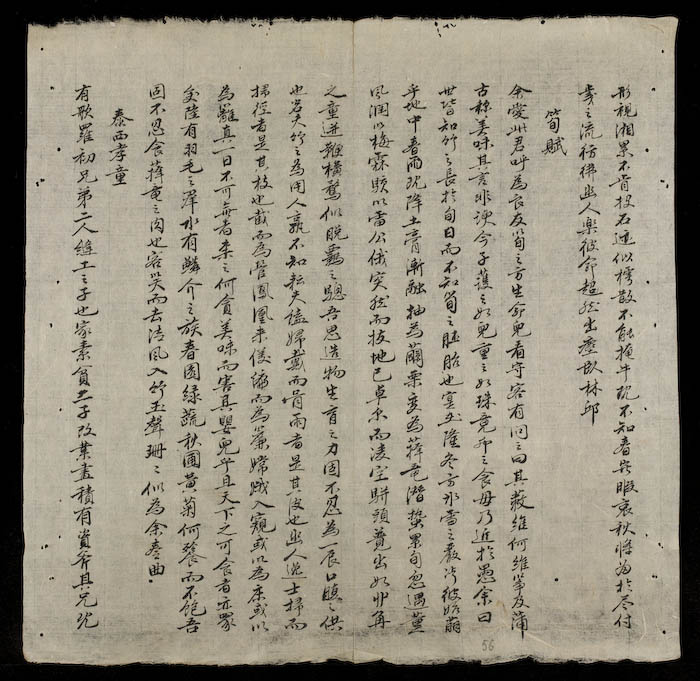 形視湘累不肯投石迹似樗散不能掩牛既不知春英暇哀秋將為於不付
炎之流彷彿幽人樂彼命超然出塵臥林邱
筍賦
余愛此君呼為良友筍之方生命兒看守客有問之曰其蔌維何維筍及蒲
古稱美味其言非諛今子護之如兒重之如珠竟却之食毋乃近於愚余曰
世皆知竹之長於旬日而不知筍之胚胎也寔玄隆冬方冰雪之嚴冱彼始萌
乎地中春雨既降土膏漸融抽為繭栗變為籜竜潛蟄累旬忽遇薰
風潤以梅霖賴以雷公俄突然而拔地已卓尔而凌空駢頭競出如丱角
之童迸鞭橫鶩似脫羈之驄吾思造物生育之力固不忍為一辰口饞之供
也若夫竹之為用人孰不知耘夫饁婦戴而骨雨者是其皮也幽人逸士掃而
掃徑者是其枝也截而為管鳳凰來儀編而為簾嫦娥入窺或以為床或以
為籬真一日不可無者柰之何貪美味而害其嬰兒乎且天下之可食者亦眾
矣陸有羽毛之萍水有鱗介之族春園綠蔬秋圃黃菊何餐而不飽吾
固不忍食籜竜之肉也客笑而去清風入竹玉聲珊之似為余奏曲
泰西孝童
有歌羅初兄第二人縫工之子也家素貧其子改業畫積有資斧其兄既